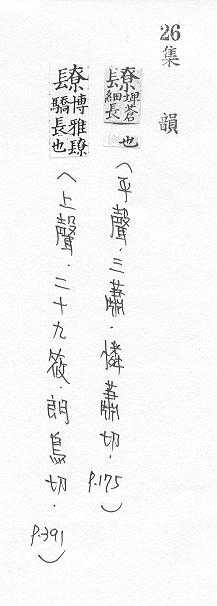 26集韻
镽埤蒼細長也（平聲．三蕭．憐蕭切．P.175）
镽博雅镽驕長也（上聲．二十九筱．朗鳥切．P.391）